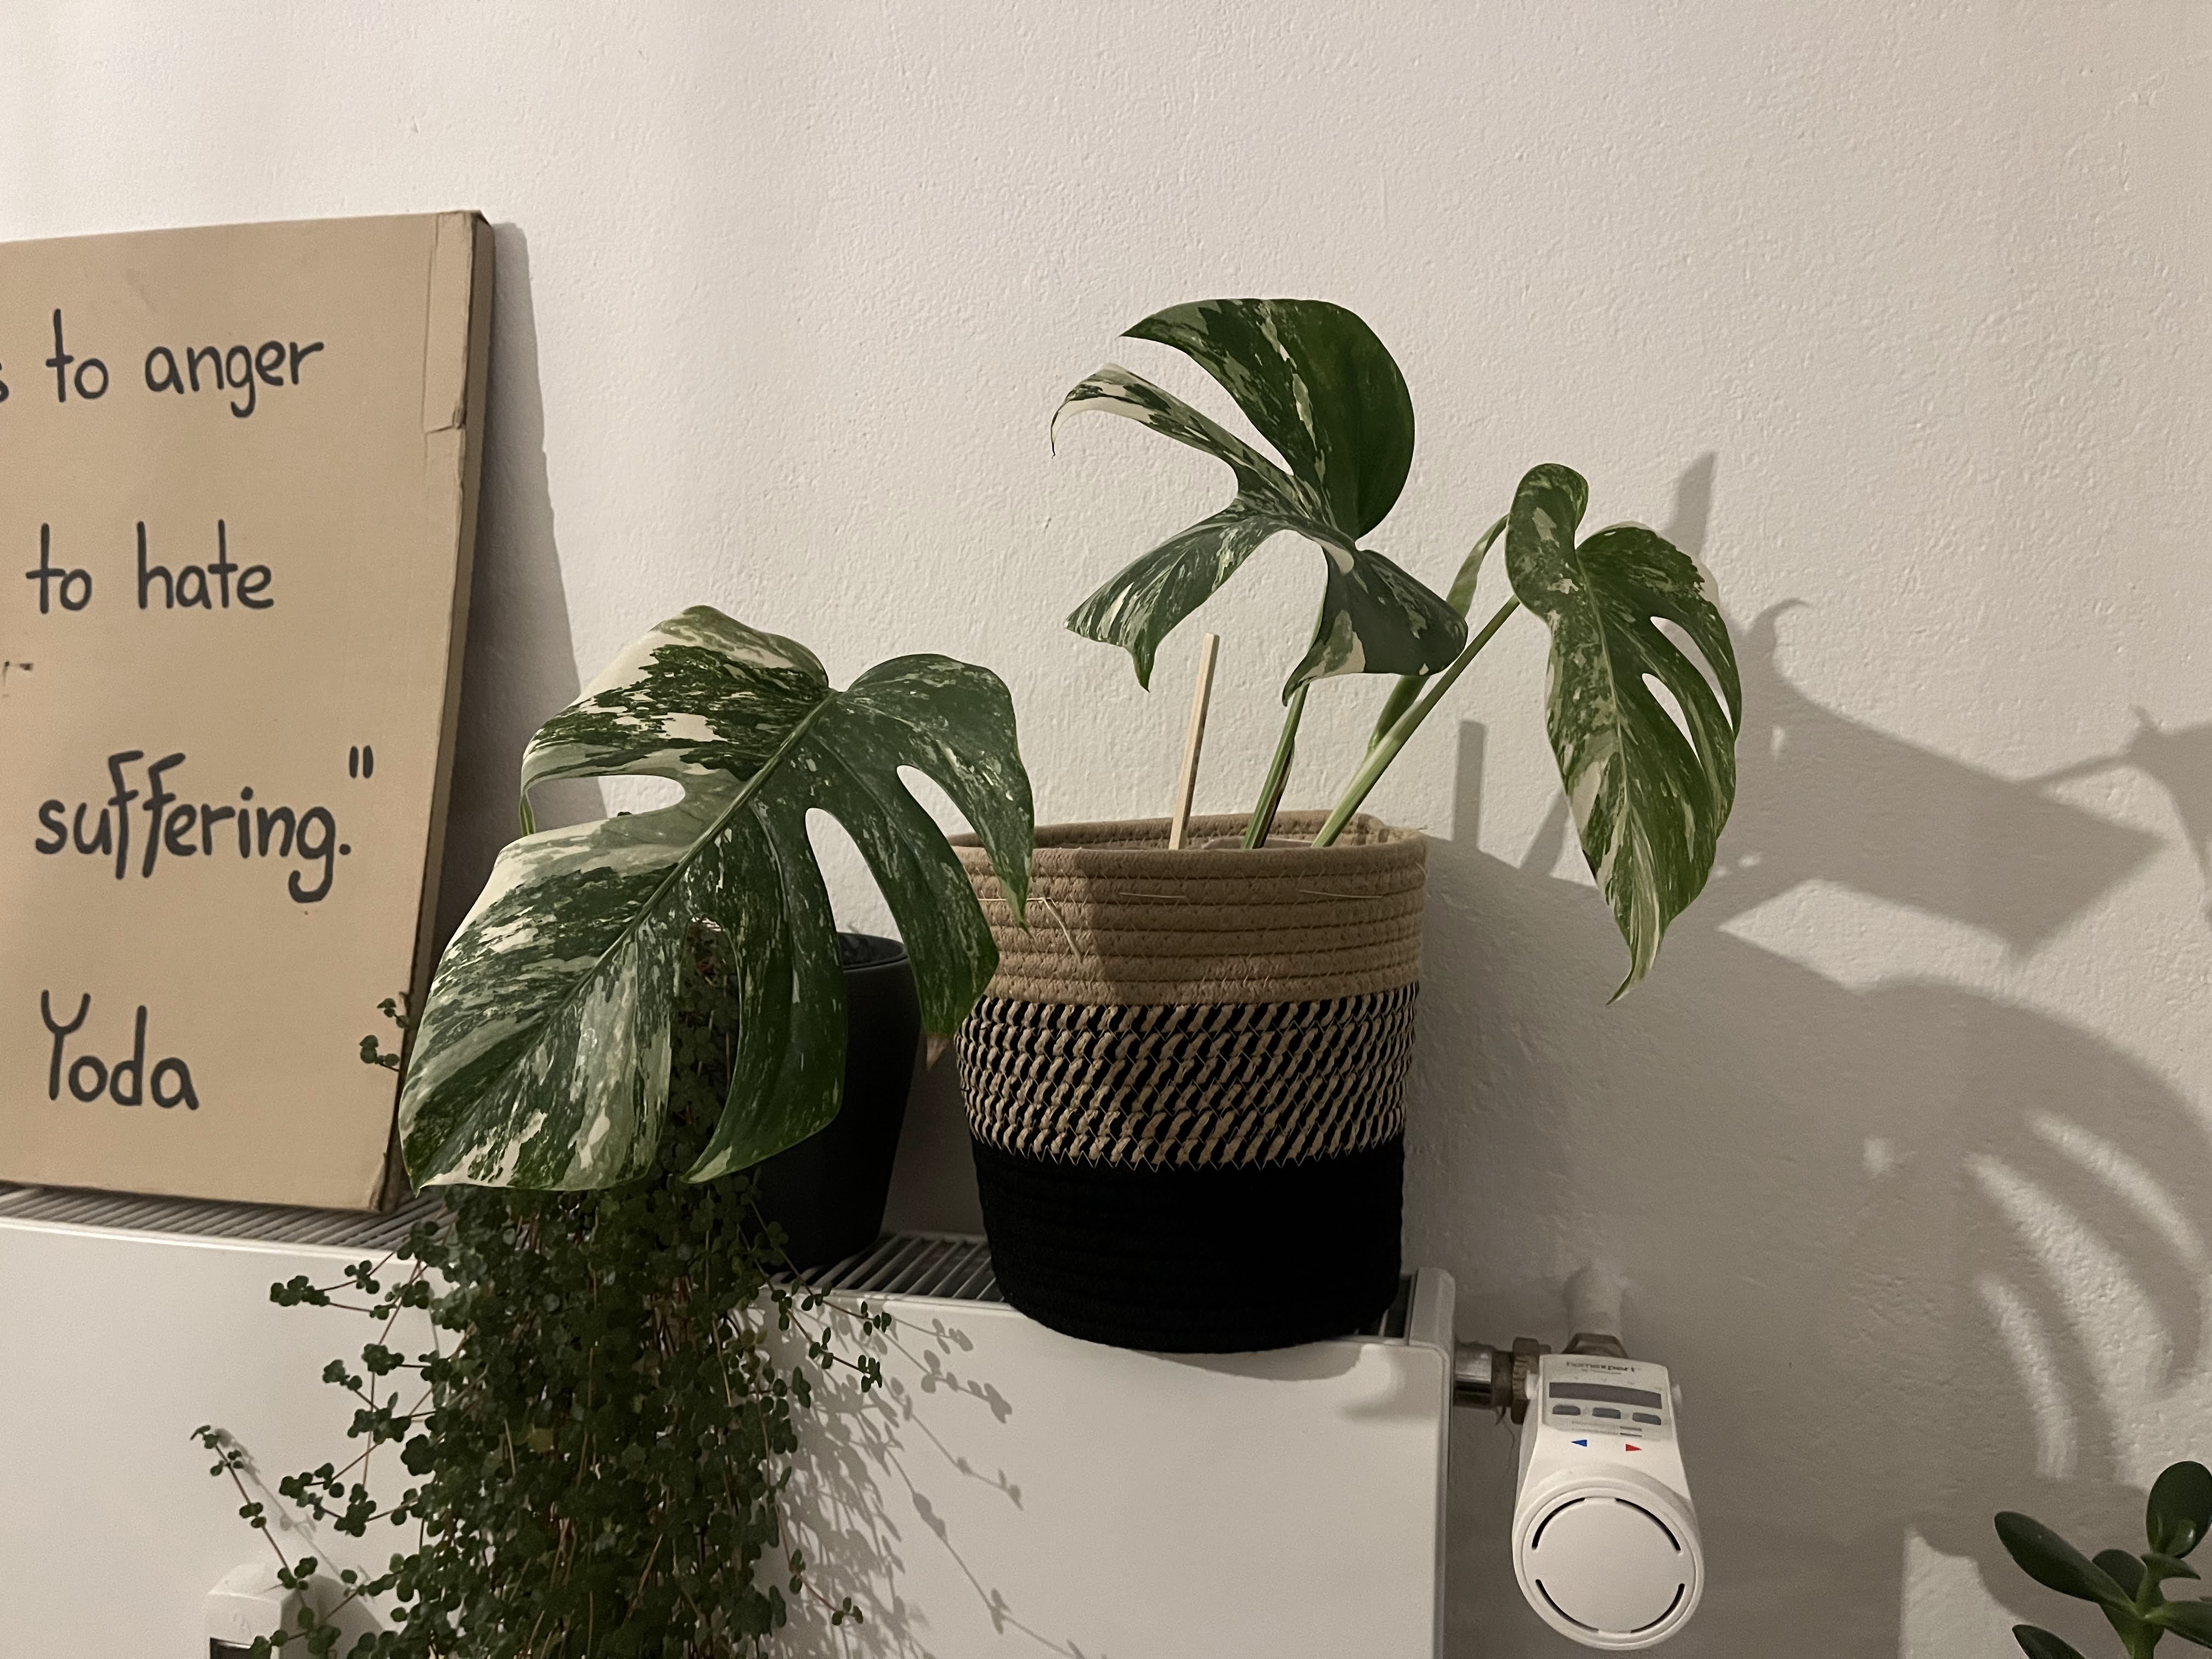 s to anger
to hate
suffering."
Yoda
homexpert